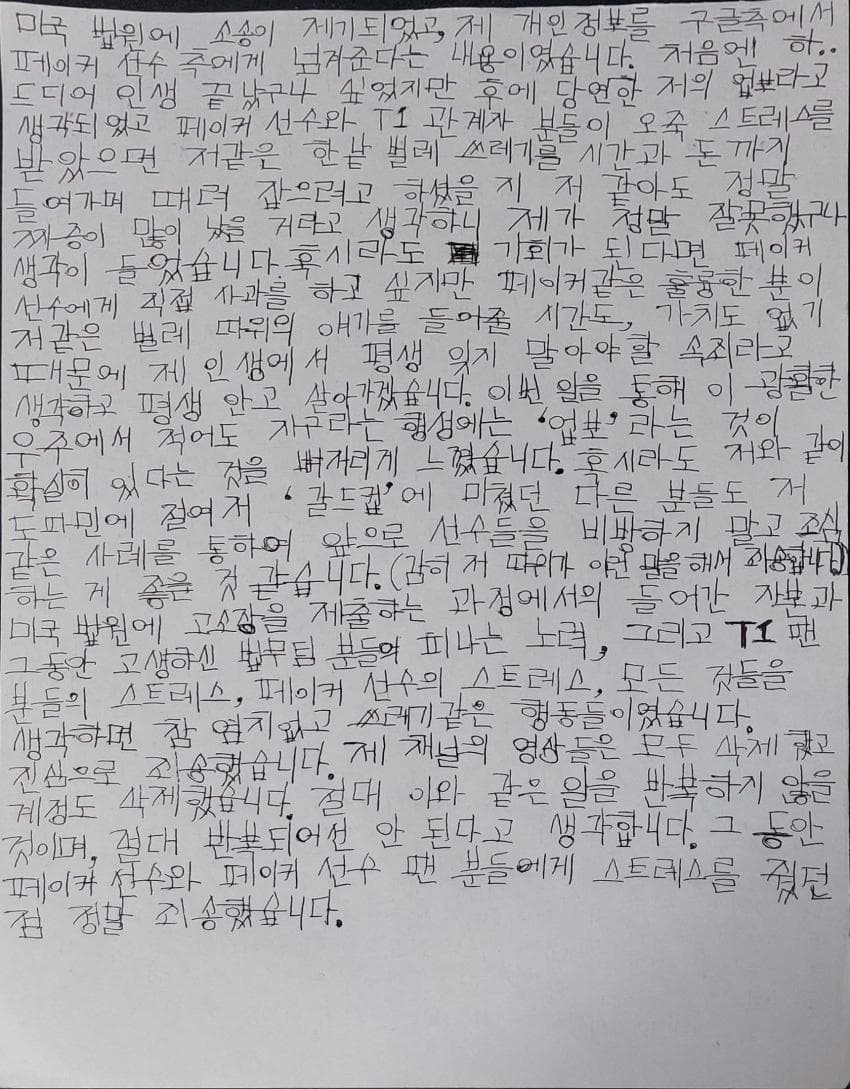 미국 법원에 소송이 제기되었고, 제 개인정보를 구글측에서
페이커 선수 측에게 넘겨준다는 내용이었습니다. 처음엔 하..
드디어 인생 끝났구나 싶었지만 후에 당연한 저의 업보라고
생각되었고 페이커 선수와 T1 관계자 분들이 오죽 스트레스를
받았으면 저같은 한낱 벌레 쓰레기를 시간과 돈까지
들여가며 때려 잡으려고 하셨을지 저 같아도 정말
짜증이 많이 났을 거라고 생각하니 제가 정말 잘못했구나
생각이 들었습니다. 혹시라도 기회가 된다면 페이커
선수에게 직접 사과를 하고 싶지만 페이커같은 훌륭한 분이
저같은 벌레 따위의 얘기를 들어줄 시간도, 가치도 없기
때문에 제 인생에서 평생 잊지 말아야할 속죄라고
생각하고 평생 안고 살아가겠습니다. 이번 일을 통해 이 광활한
우주에서 적어도 지구라는 행성에는 '업보'라는 것이
확실히 있다는 것을 뼈저리게 느꼈습니다. 혹시라도 저와 같이
도파민에 절여져 '골드컵'에 미쳤던 다른 분들도 저
같은 사례를 통하여 앞으로 선수들을 비방하지 말고 조심
하는 게 좋을 것 같습니다. (감히 저 따위가 이런 말을 해서 죄송합니다)
미국 법원에 고소장을 제출하는 과정에서의 들어간 자본과
그동안 고생하신 법무팀 분들의 피나는 노력, 그리고 T1 팬
분들의 스트레스, 페이커 선수의 스트레스, 모든 것들을
생각하면 참 염치없고 쓰레기같은 행동들이었습니다.
진심으로 죄송했습니다. 제 채널의 영상들은 모두 삭제 했고
계정도 삭제했습니다. 절대 이와 같은 일을 반복하지 않을
것이며, 절대 반복되어선 안 된다고 생각합니다. 그 동안
페이커 선수와 페이커 선수 팬 분들에게 스트레스를 줬던
점 정말 죄송했습니다.